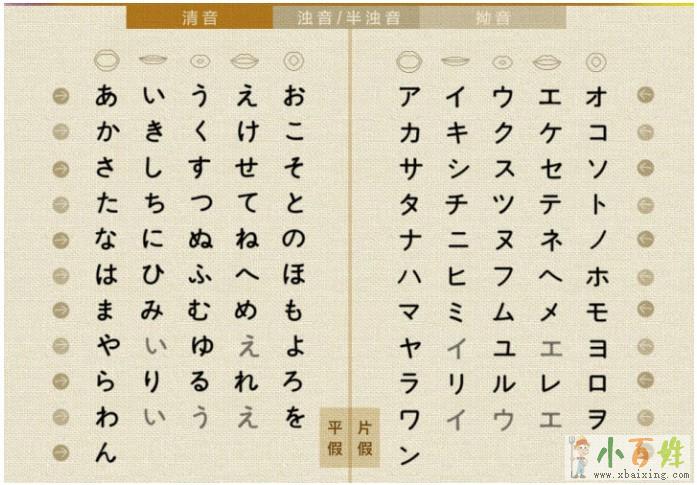 清音 浊音/半浊音 拗音
あ い う え お ア イ ウ エ オ
か き く け こ カ キ ク ケ コ
さ し す せ そ サ シ ス セ ソ
た ち つ て と タ チ ツ テ ト
な に ぬ ね の ナ ニ ヌ ネ ノ
は ひ ふ へ ほ ハ ヒ フ ヘ ホ
ま み む め も マ ミ ム メ モ
や い ゆ え よ ヤ イ ユ エ ヨ
ら り る れ ろ ラ リ ル レ ロ
わ い う え を ワ イ ウ エ ヲ
ん ン
平假 片假
小百姓
www.xbaixing.com